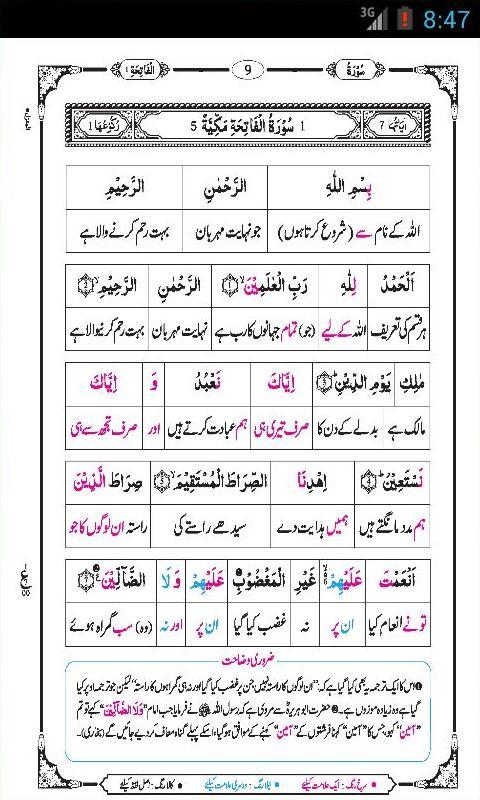 3G 8:47
سُوْرَةُ 9 اَلْفَاتِحَةِ 1
اٰيَاتُهَا 7 1 سُوْرَةُ الْفَاتِحَةِ مَكِّيَّةٌ 5 رُكُوْعُهَا 1
بِسْمِ اللهِ الرَّحْمٰنِ الرَّحِيْمِ
اللہ کے نام سے (شروع کرتا ہوں) جو نہایت مہربان بہت رحم کرنے والا ہے
اَلْحَمْدُ لِلّٰهِ رَبِّ الْعٰلَمِيْنَ ۙ﴿1﴾ الرَّحْمٰنِ الرَّحِيْمِ ۙ﴿2﴾
ہر قسم کی تعریف اللہ کے لیے (جو) تمام جہانوں کا رب ہے نہایت مہربان بہت رحم کرنیوالا ہے
مٰلِكِ يَوْمِ الدِّيْنِ ؕ﴿3﴾ اِيَّاكَ نَعْبُدُ وَ اِيَّاكَ
مالک ہے بدلے کے دن کا صرف تیری ہی ہم عبادت کرتے ہیں اور صرف تجھ سے ہی
نَسْتَعِيْنُ ؕ﴿4﴾ اِهْدِنَا الصِّرَاطَ الْمُسْتَقِيْمَ ۙ﴿5﴾ صِرَاطَ الَّذِيْنَ
ہم مدد مانگتے ہیں ہمیں ہدایت دے سیدھے راستے کی راستہ ان لوگوں کا جو
اَنْعَمْتَ عَلَيْهِمْ ۙ۬ غَيْرِ الْمَغْضُوْبِ عَلَيْهِمْ وَلَا الضَّآلِّيْنَ ﴿7﴾
تو نے انعام کیا ان پر نہ غضب کیا گیا ان پر اور نہ (وہ) سب گمراہ ہوئے
ضروری وضاحت
❶ اس کا ایک ترجمہ یہ بھی کیا گیا ہے کہ: "ان لوگوں کا راستہ نہیں جن پر غضب کیا گیا اور نہ ہی گمراہوں کا راستہ" لیکن جو ترجمہ اوپر کیا
گیا ہے وہ زیادہ موزوں ہے۔ ❷ حضرت ابوہریرہؓ سے مروی ہے کہ رسول اللہ ﷺ نے فرمایا جب امام "وَلَا الضَّآلِّيْنَ" کہے تو تم
"آمین" کہو، جس کا "آمین" کہنا فرشتوں کے "آمین" کہنے کے موافق ہو گیا، اسکے پہلے گناہ معاف کر دیے جائیں گے (بخاری)۔
• سرخ رنگ: ایک علامت کیلئے • نیلا رنگ: دوسری علامت کیلئے • کالا رنگ: اصل لفظ کیلئے